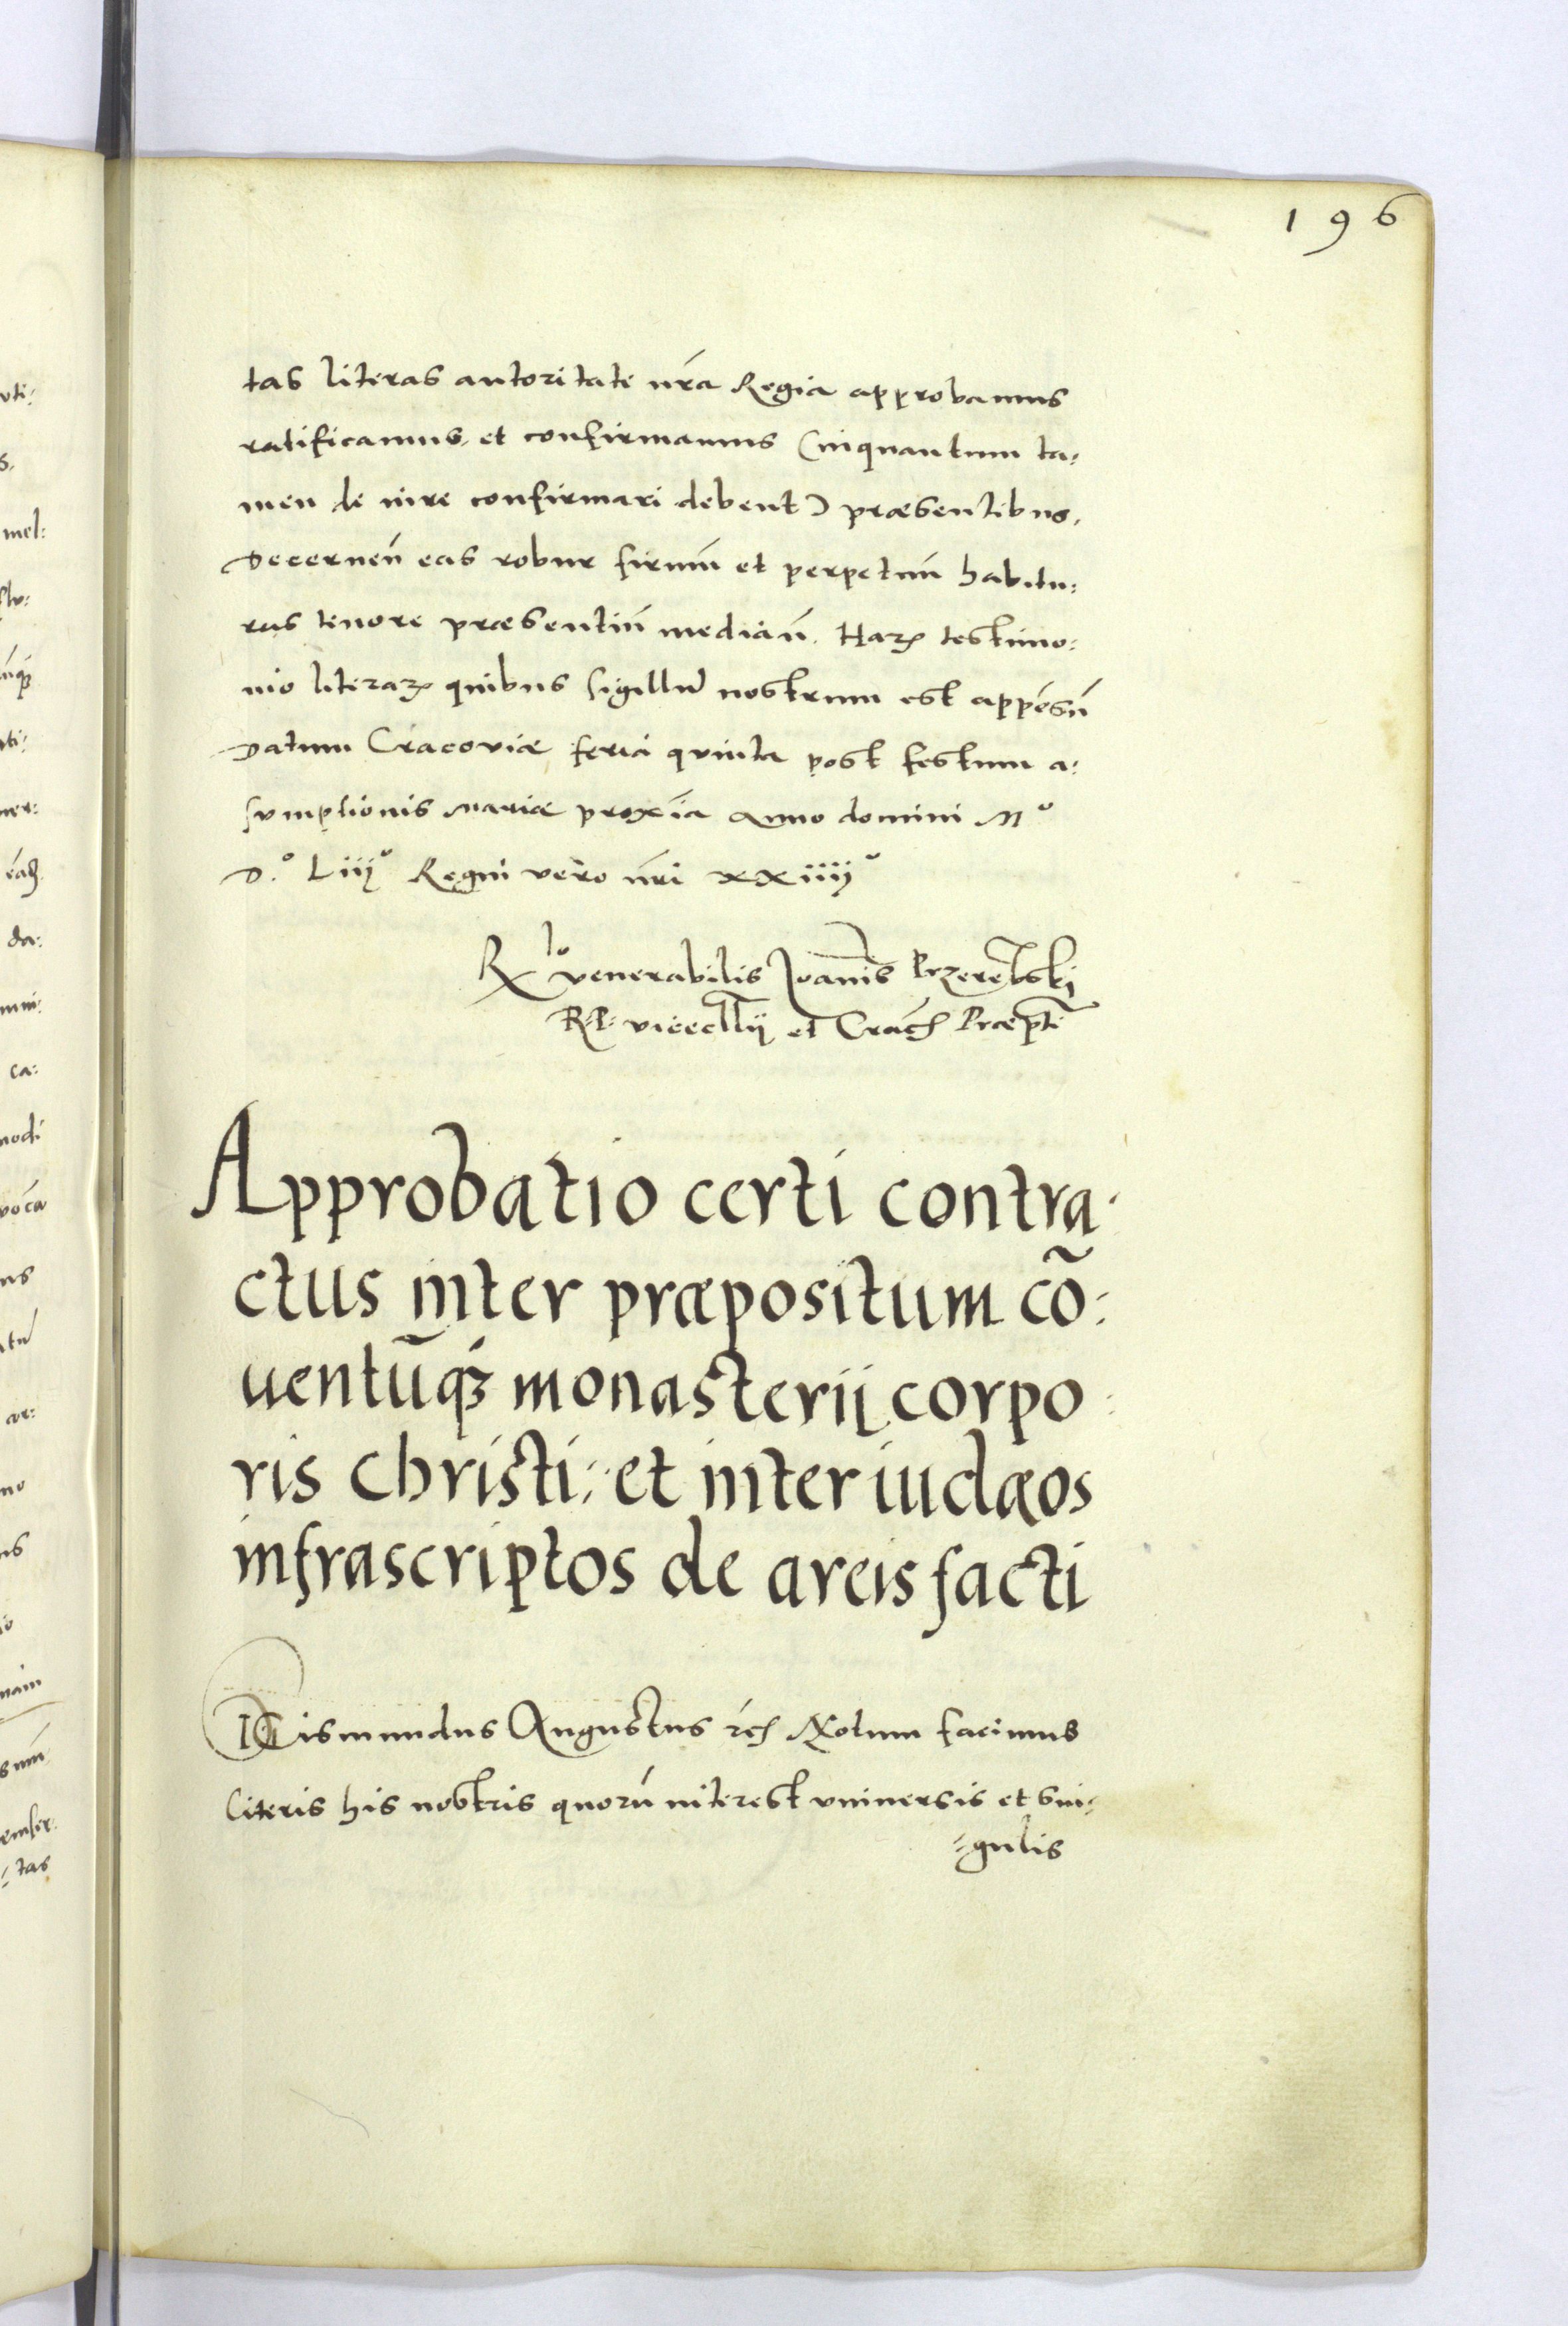 196
tas literas autoritate nrã Regia approbamus
ratificamus, et confirmamus (inquantum ta:
men de iure confirmari debent) præsentibus.
Decerneñ eas robur firmũ et perpetuũ habitu:
ras tenore præsentiũ mediañ. Harꝝ testimo:
nio literarꝝ quibus sigillũ nostrum est appensũ
Datum Cracoviæ feria quinta post festum a:
sumptionis Mariæ proxĩa Anno domini Mº
D.º Liiijº Regni vero nrĩ xxiiiiº
Rlo venerabilis Joannis Przerembski
R. P. vicecllrij et Crac̃ Præpti
Approbatio certi contra:
ctus inter præpositum cõ:
uentũqꝫ monasterij corpo:
ris Christi: et inter iudæos
infrascriptos de areis facti
SIGismundus Augustus rc̃ Notum facimus
literis his nostris quorũ interest vniuersis et sin:
:gulis
mel:
da:
ca:
modi
ius
:tas